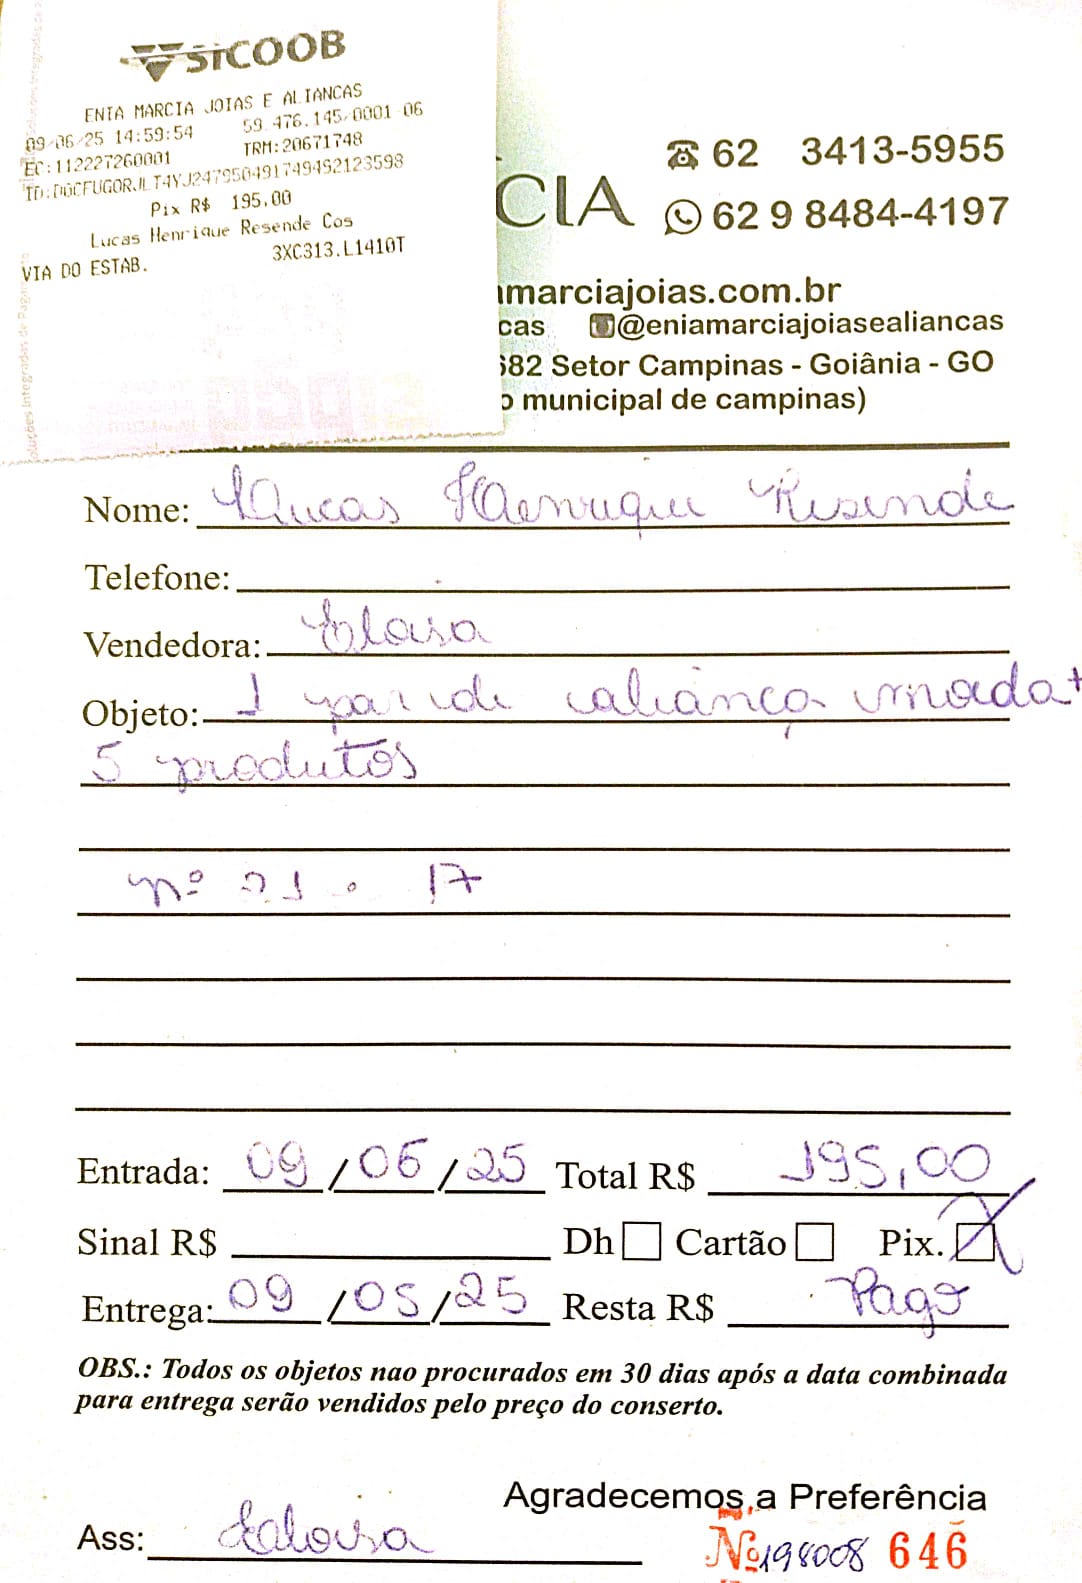 SICOOB
ENIA MARCIA JOIAS E ALIANCAS
09/06/25 14:59:54 59.476.145/0001-06
EC:112227260001 TRM:20671748
Pix R$ 195,00
Lucas Henrique Resende Cos
3XC313.L1410T
VIA DO ESTAB.
CIA
62 3413-5955
62 9 8484-4197
marciajoias.com.br
cas @eniamarciajoiasealiancas
682 Setor Campinas - Goiânia - GO
o municipal de campinas)
Nome: Lucas Henrique Resende
Telefone:
Vendedora:
Objeto: 1 par de aliança +
5 produtos
nº 21 . 17
Entrada: 09/06/25 Total R$ 195,00
Sinal R$ Dh Cartão Pix. X
Entrega: 09/05/25 Resta R$ Pago
OBS.: Todos os objetos nao procurados em 30 dias após a data combinada
para entrega serão vendidos pelo preço do conserto.
Agradecemos a Preferência
Ass:
Nº 198008 646